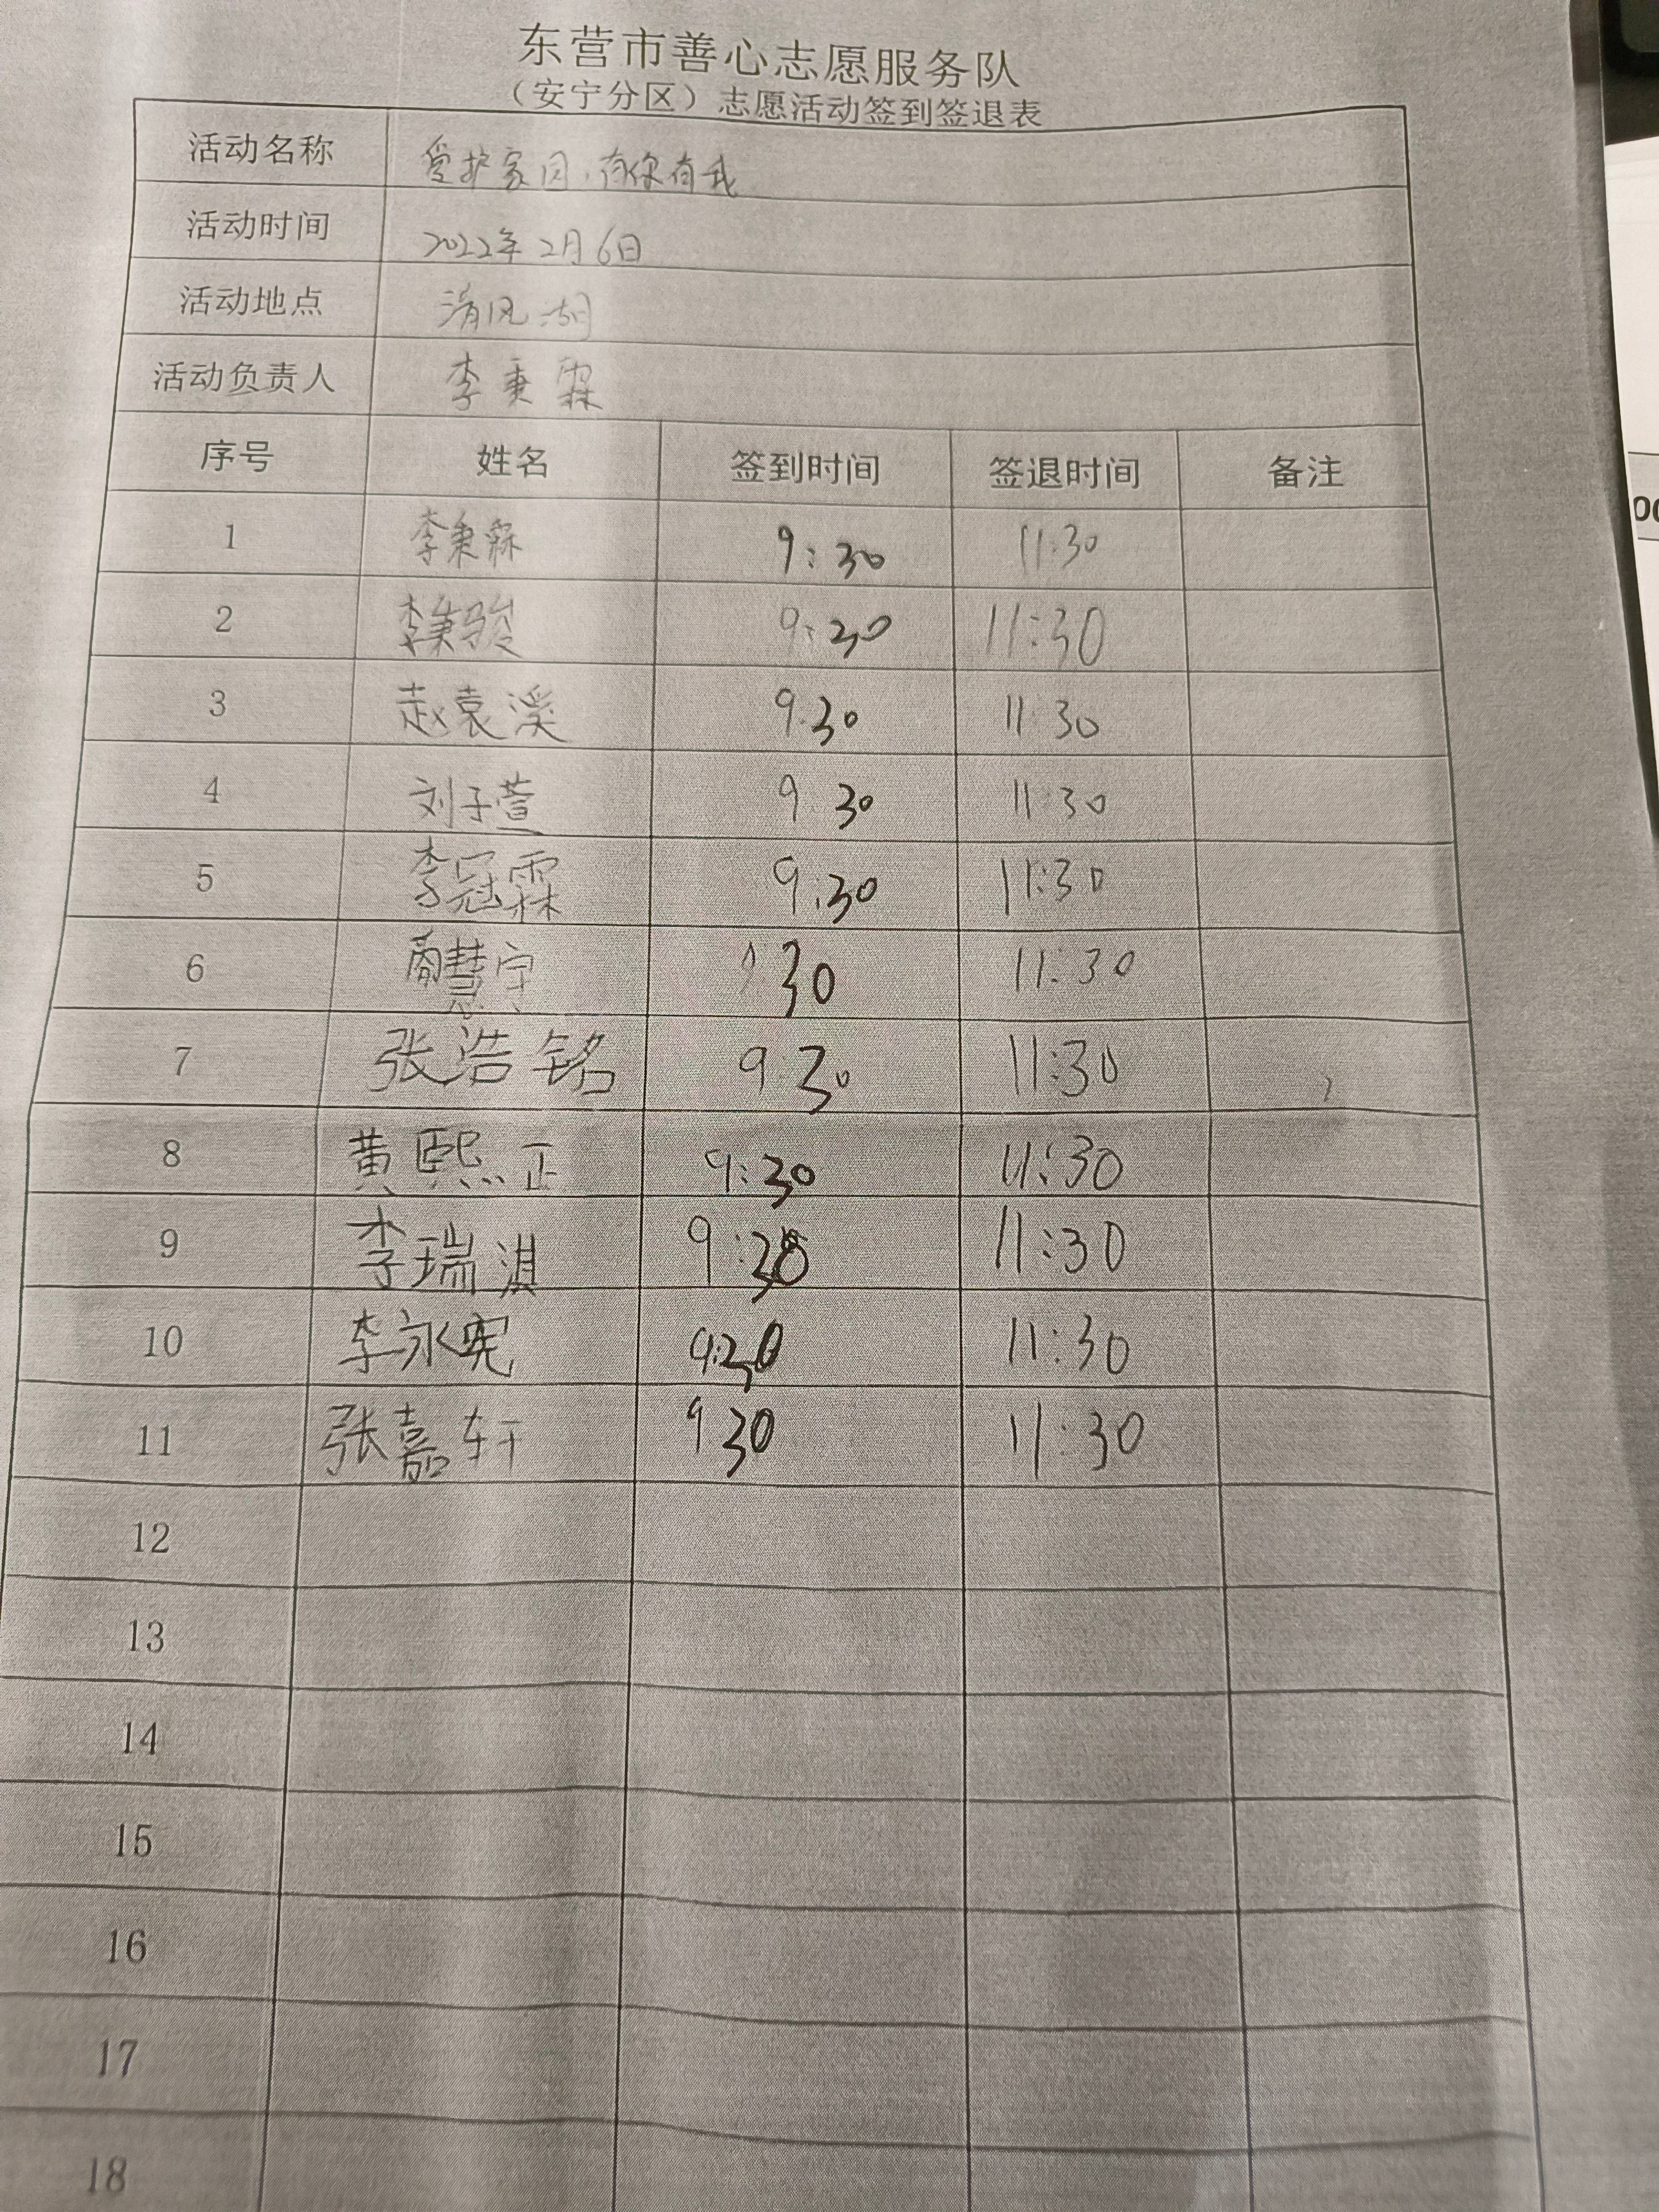 东营市善心志愿服务队
（安宁分区）志愿活动签到签退表
活动名称 爱护家园，有你有我
活动时间 2022年2月6日
活动地点 清风湖
活动负责人 李秉霖
序号 姓名 签到时间 签退时间 备注
1 李秉霖 9:30 11:30
2 李秉骏 9:30 11:30
3 赵袁溪 9:30 11:30
4 刘子萱 9:30 11:30
5 李冠霖 9:30 11:30
6 慧宇 30 11:30
7 张浩铭 9 30 11:30
8 黄熙正 9:30 11:30
9 李瑞淇 9:30 11:30
10 李永宪 9:30 11:30
11 张嘉轩 9 30 11:30
12
13
14
15
16
17
18